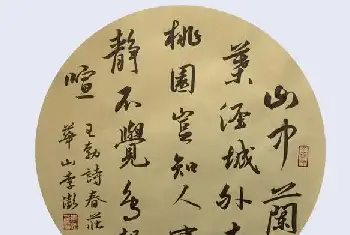 山中蘭
葉徑城外
桃園豈知人事
靜不覺鳥
喧
王勃詩春莊
華山李澍